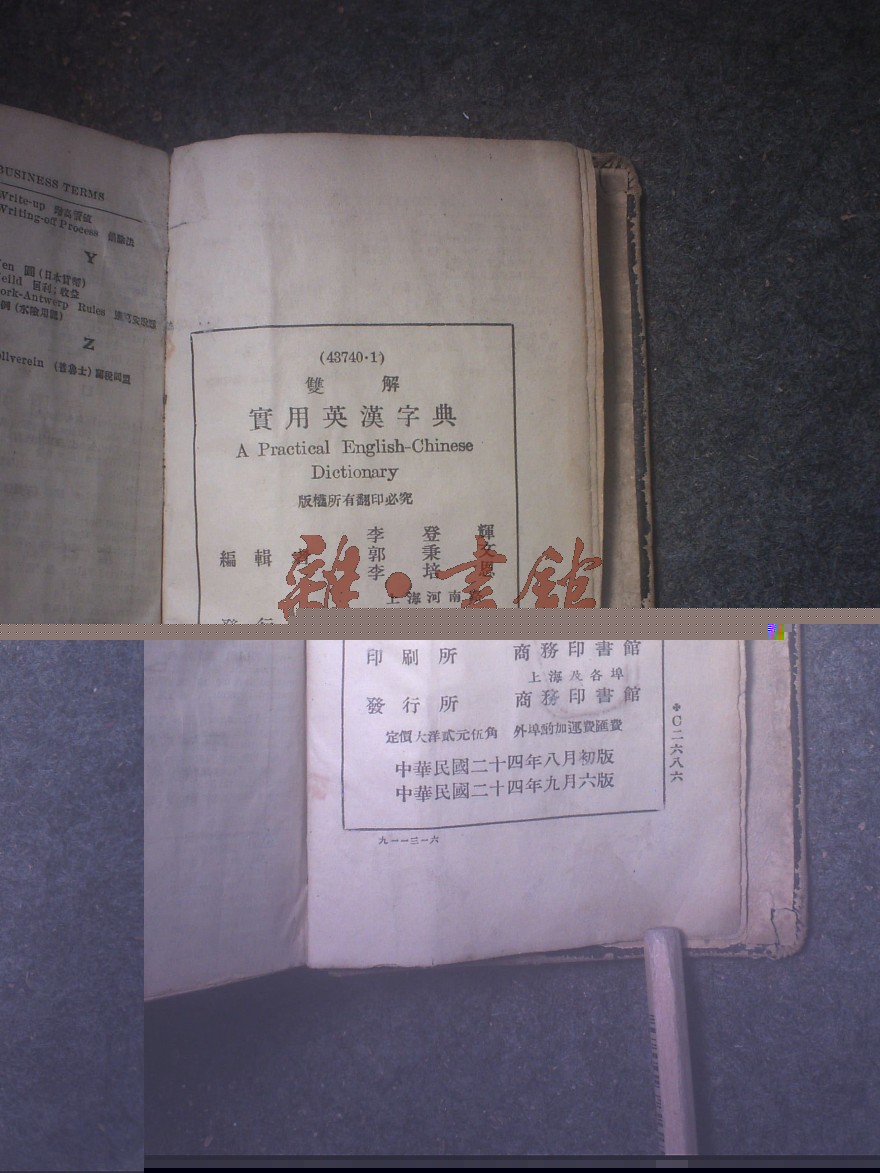 BUSINESS TERMS
Write-up
Writing-off Process
Y
圓(日本貨幣)
Rules
Z
(43740·1)
雙 解
實用英漢字典
A Practical English-Chinese
Dictionary
版權所有翻印必究
編輯者
李登輝
郭秉文
李培恩
上海河南路
發行
雜·書館
印刷所 商務印書館
上海及各埠
發行所 商務印書館
定價大洋貳元伍角 外埠酌加運費匯費
中華民國二十四年八月初版
中華民國二十四年九月六版
C二六八六
九一一三·六